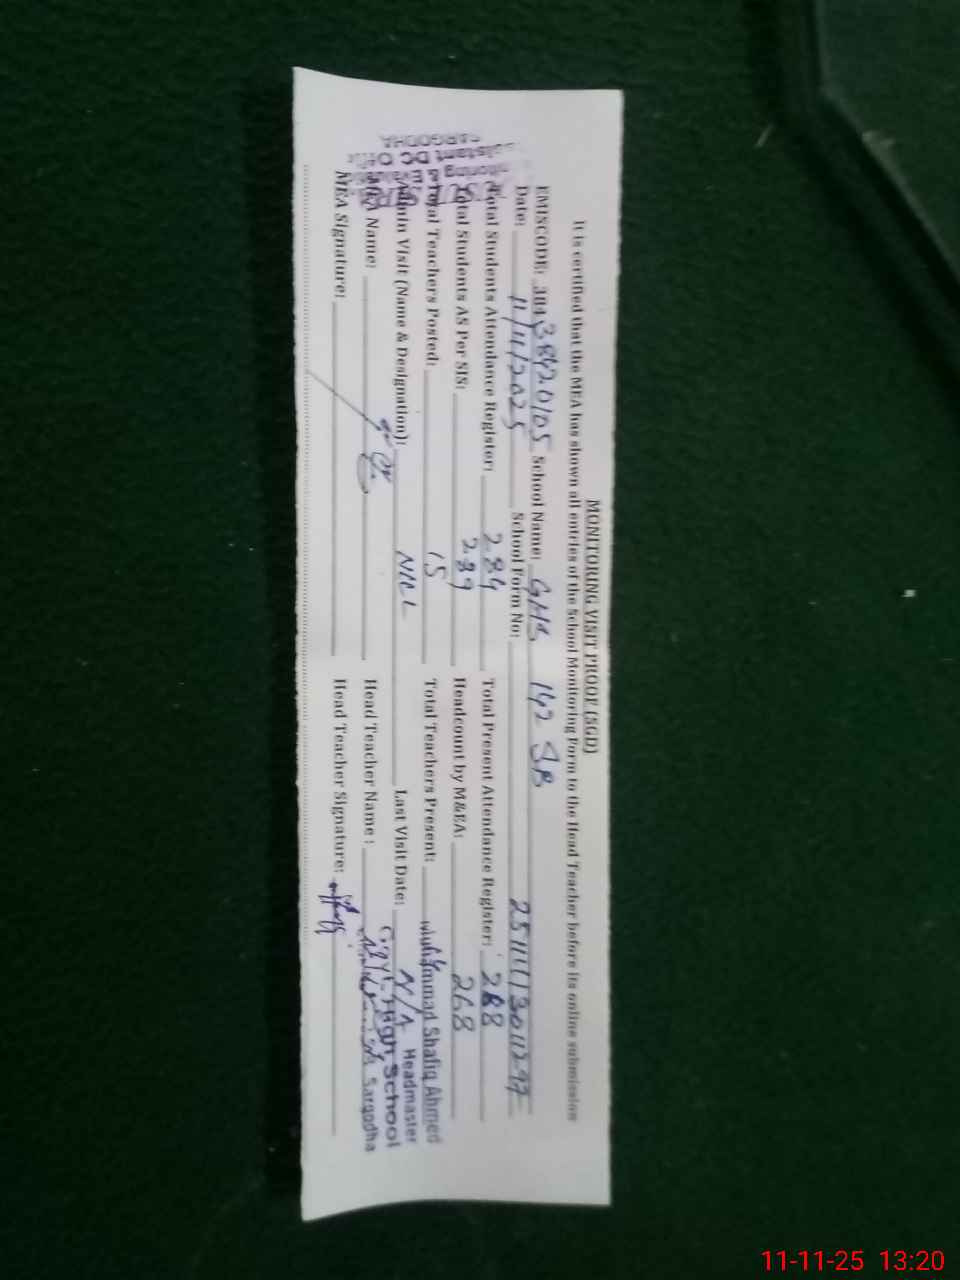 MONITORING VISIT PROOF (SGD)
It is certified that the MEA has shown all entries of the School Monitoring Form to the Head Teacher before its online submission
EMISCODE: 384 38420105 School Name: GHS 142 SB
Date: 11/11/2025 School Form No: 
Total Students Attendance Register: 289 Total Present Attendance Register: 268
Total Students AS Per SIS: 289 Headcount by M&EA: 268
Total Teachers Posted: 15 Total Teachers Present:
Admin Visit (Name & Designation): NILL Last Visit Date: N/A
Name: Head Teacher Name :
MEA Signature: Head Teacher Signature:
Muhammad Shafiq Ahmed
Headmaster
Govt. High School
Sargodha
Monitoring & Evaluation
Assistant DC Office
SARGODHA
11-11-25 13:20